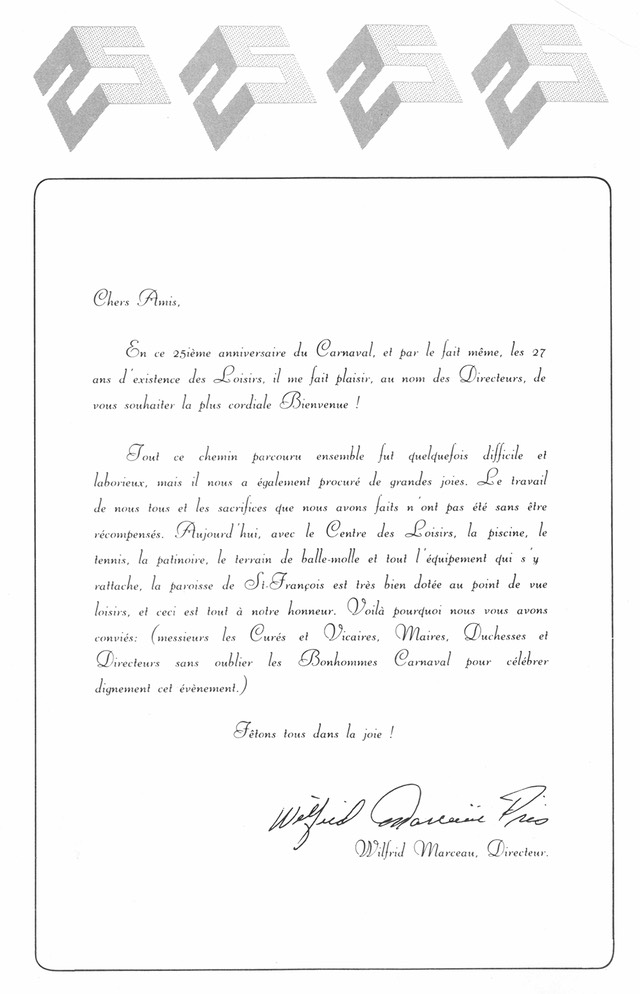 25 25 25 25
Chers Amis,
En ce 25ième anniversaire du Carnaval, et par le fait même, les 27
ans d'existence des Loisirs, il me fait plaisir, au nom des Directeurs, de
vous souhaiter la plus cordiale Bienvenue !
Tout ce chemin parcouru ensemble fut quelquefois difficile et
laborieux, mais il nous a également procuré de grandes joies. Le travail
de nous tous et les sacrifices que nous avons faits n'ont pas été sans être
récompensés. Aujourd'hui, avec le Centre des Loisirs, la piscine, le
tennis, la patinoire, le terrain de balle-molle et tout l'équipement qui s'y
rattache, la paroisse de St-François est très bien dotée au point de vue
loisirs, et ceci est tout à notre honneur. Voilà pourquoi nous vous avons
conviés: (messieurs les Curés et Vicaires, Maires, Duchesses et
Directeurs sans oublier les Bonhommes Carnaval pour célébrer
dignement cet évènement.)
Fêtons tous dans la joie !
Wilfrid Marceau Prés
Wilfrid Marceau, Directeur.